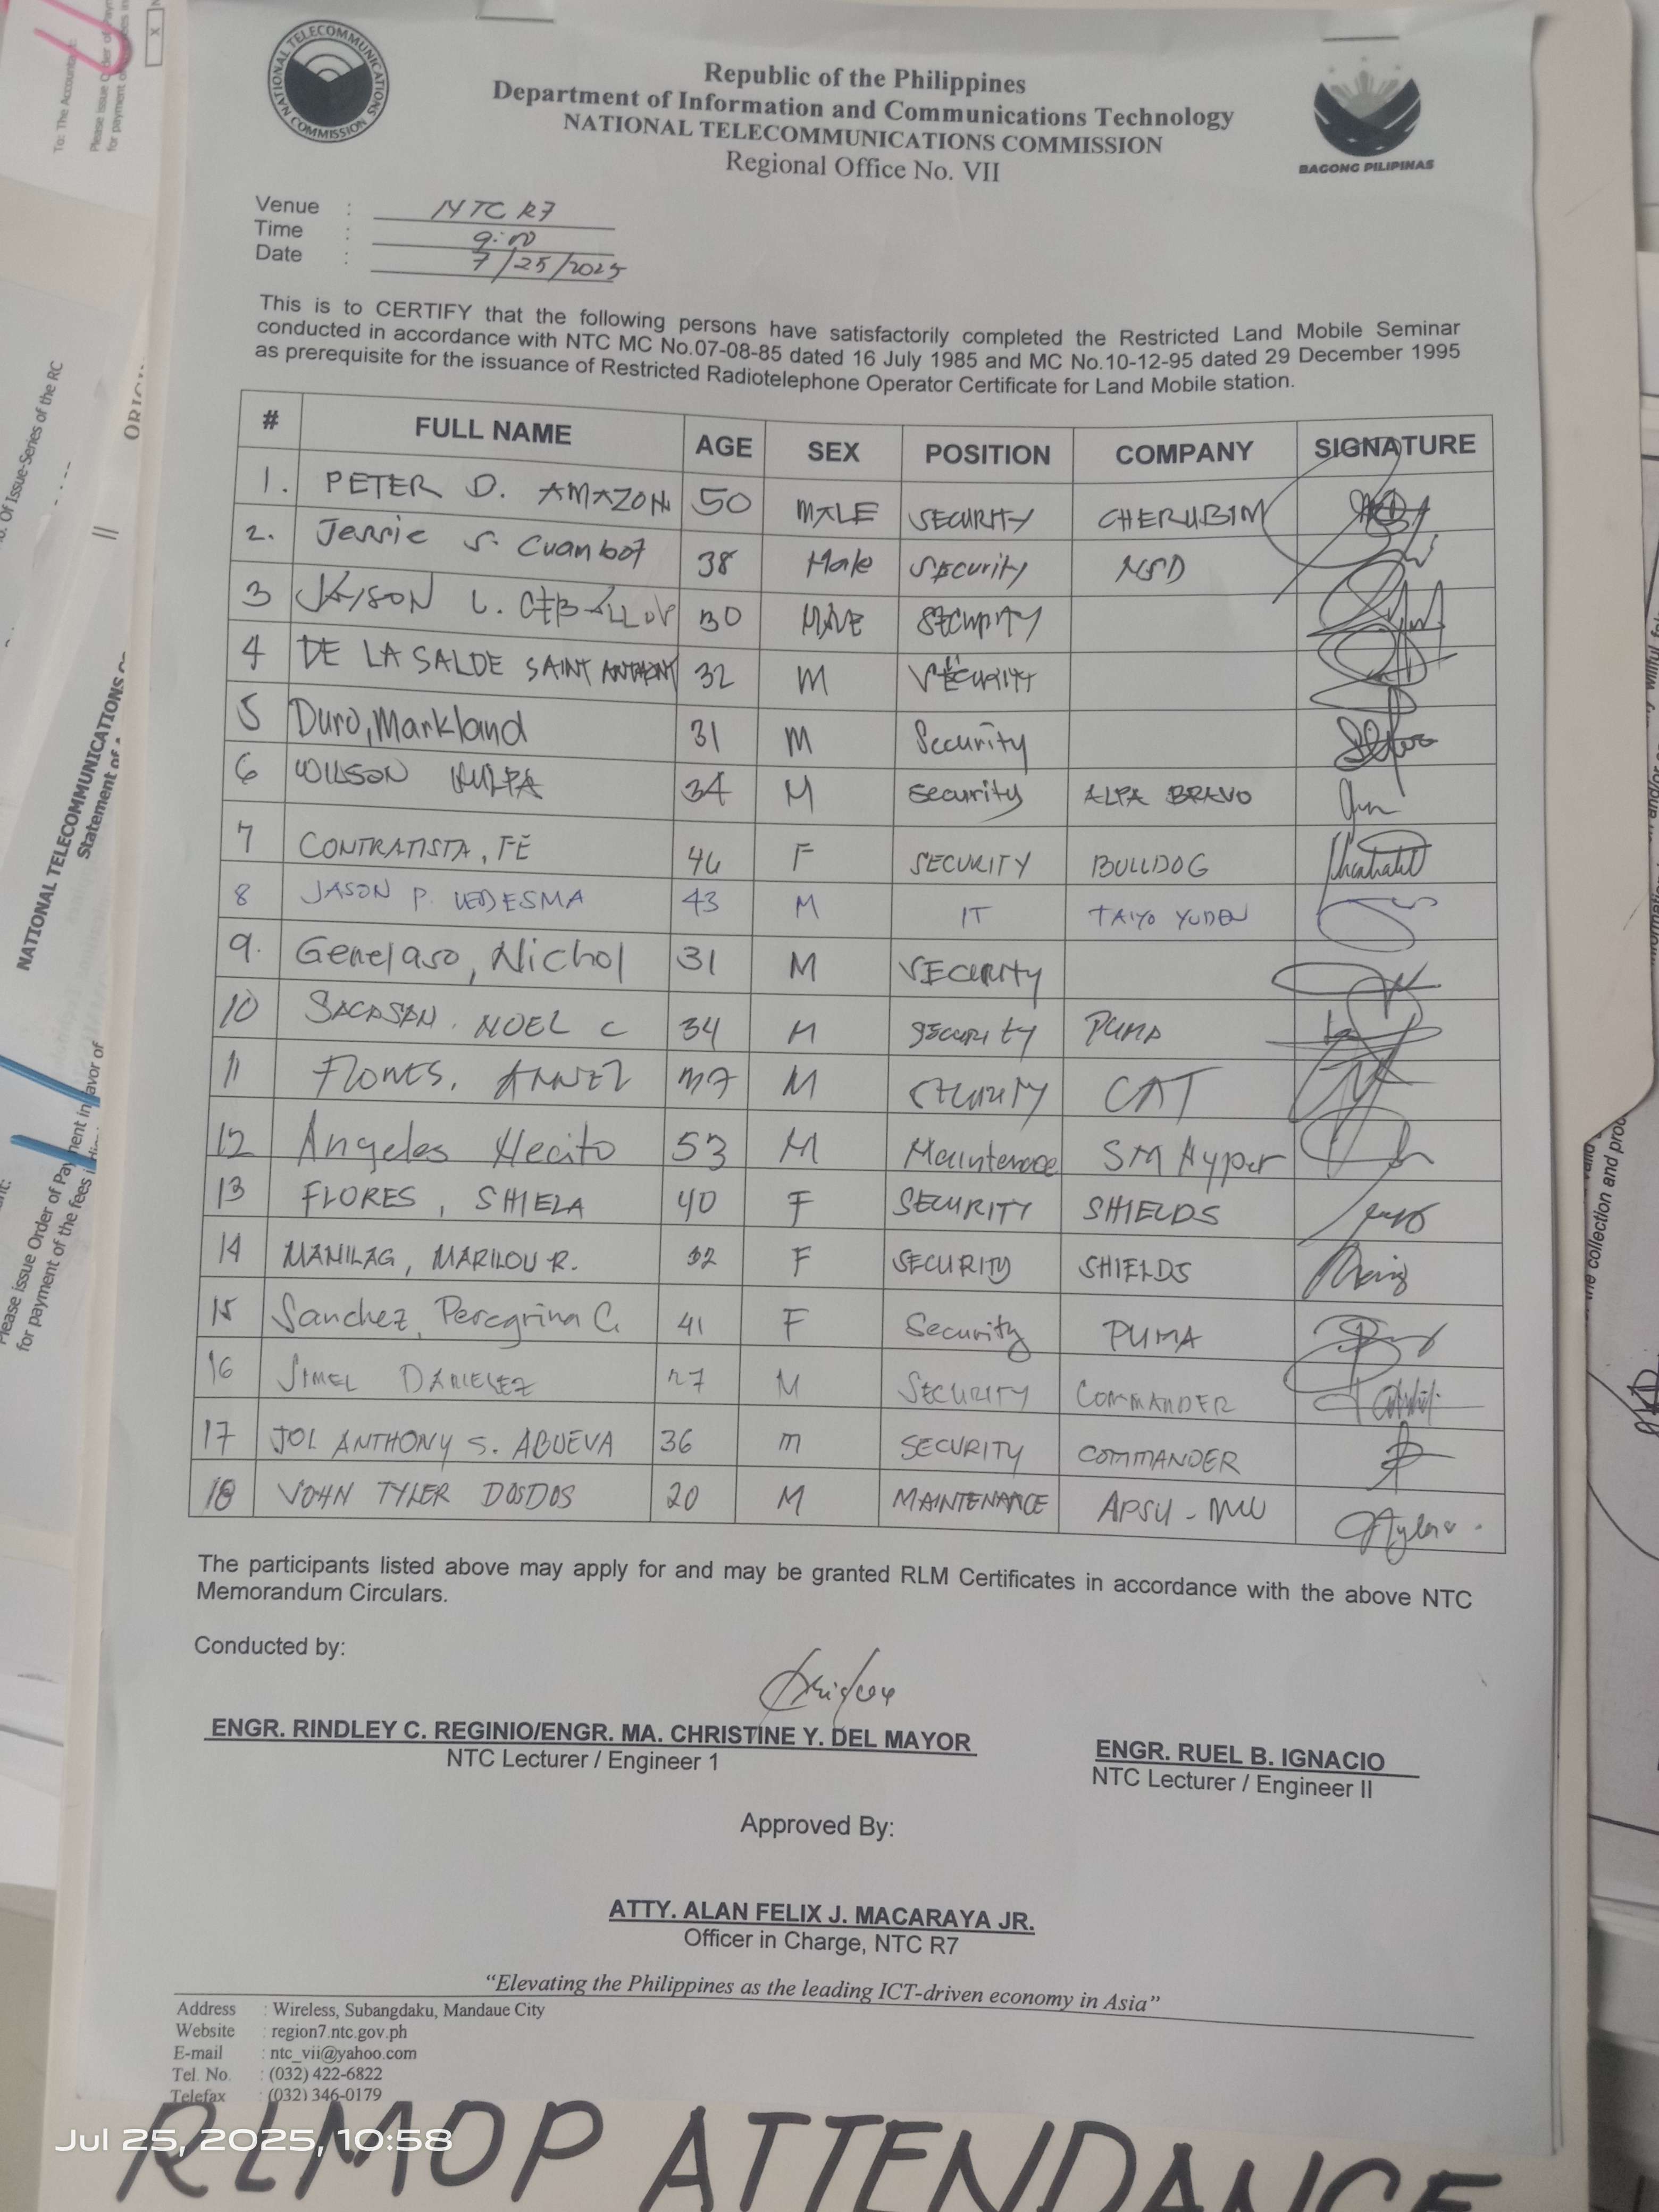 NATIONAL TELECOMMUNICATIONS COMMISSION
Republic of the Philippines
Department of Information and Communications Technology
NATIONAL TELECOMMUNICATIONS COMMISSION
Regional Office No. VII
BAGONG PILIPINAS
Venue : NTC R7
Time : 9:00
Date : 7/25/2025
This is to CERTIFY that the following persons have satisfactorily completed the Restricted Land Mobile Seminar
conducted in accordance with NTC MC No.07-08-85 dated 16 July 1985 and MC No.10-12-95 dated 29 December 1995
as prerequisite for the issuance of Restricted Radiotelephone Operator Certificate for Land Mobile station.
# FULL NAME AGE SEX POSITION COMPANY SIGNATURE
1. PETER D. AMAZON 50 MALE SECURITY CHERUBIM
2. Jerric S. Cuambot 38 Male Security NSD
3 JAYSON L. 30 MALE SECURITY
4 DE LA SALDE SAINT ANTHONY 32 M SECURITY
5 Duro, Markland 31 M Security
6 WILSON 34 M Security ALPA BRAVO
7 CONTRATISTA, FE 46 F SECURITY BULLDOG
8 JASON P. LEDESMA 43 M IT TAIYO YUDEN
9. Genelaso, Nichol 31 M SECURITY
10 SACASAN, NOEL C 34 M Security PUMA
11 FLORES, 37 M SECURITY CAT
12 Angeles Hecito 53 M Maintenace SM Hyper
13 FLORES, SHIELA 40 F SECURITY SHIELDS
14 MANILAG, MARILOU R. 32 F SECURITY SHIELDS
15 Sanchez, Peregrina C. 41 F Security PUMA
16 JIMEL DARIELEZ 27 M SECURITY COMMANDER
17 JOL ANTHONY S. ABUEVA 36 m SECURITY COMMANDER
18 JOHN TYLER DOSDOS 20 M MAINTENANCE
The participants listed above may apply for and may be granted RLM Certificates in accordance with the above NTC
Memorandum Circulars.
Conducted by:
ENGR. RINDLEY C. REGINIO/ENGR. MA. CHRISTINE Y. DEL MAYOR
NTC Lecturer / Engineer 1
ENGR. RUEL B. IGNACIO
NTC Lecturer / Engineer II
Approved By:
ATTY. ALAN FELIX J. MACARAYA JR.
Officer in Charge, NTC R7
“Elevating the Philippines as the leading ICT-driven economy in Asia”
Address : Wireless, Subangdaku, Mandaue City
Website : region7.ntc.gov.ph
E-mail : ntc_vii@yahoo.com
Tel. No. : (032) 422-6822
Telefax : (032) 346-0179
RLMOP ATTENDANCE
Jul 25, 2025, 10:58
To: The Accountant
Please issue Order of
for payment
No. Of Issue-Series of the RC
NATIONAL TELECOMMUNICATIONS
Statement of
Please issue Order of Payment in favor of
for payment of the fees
the collection and